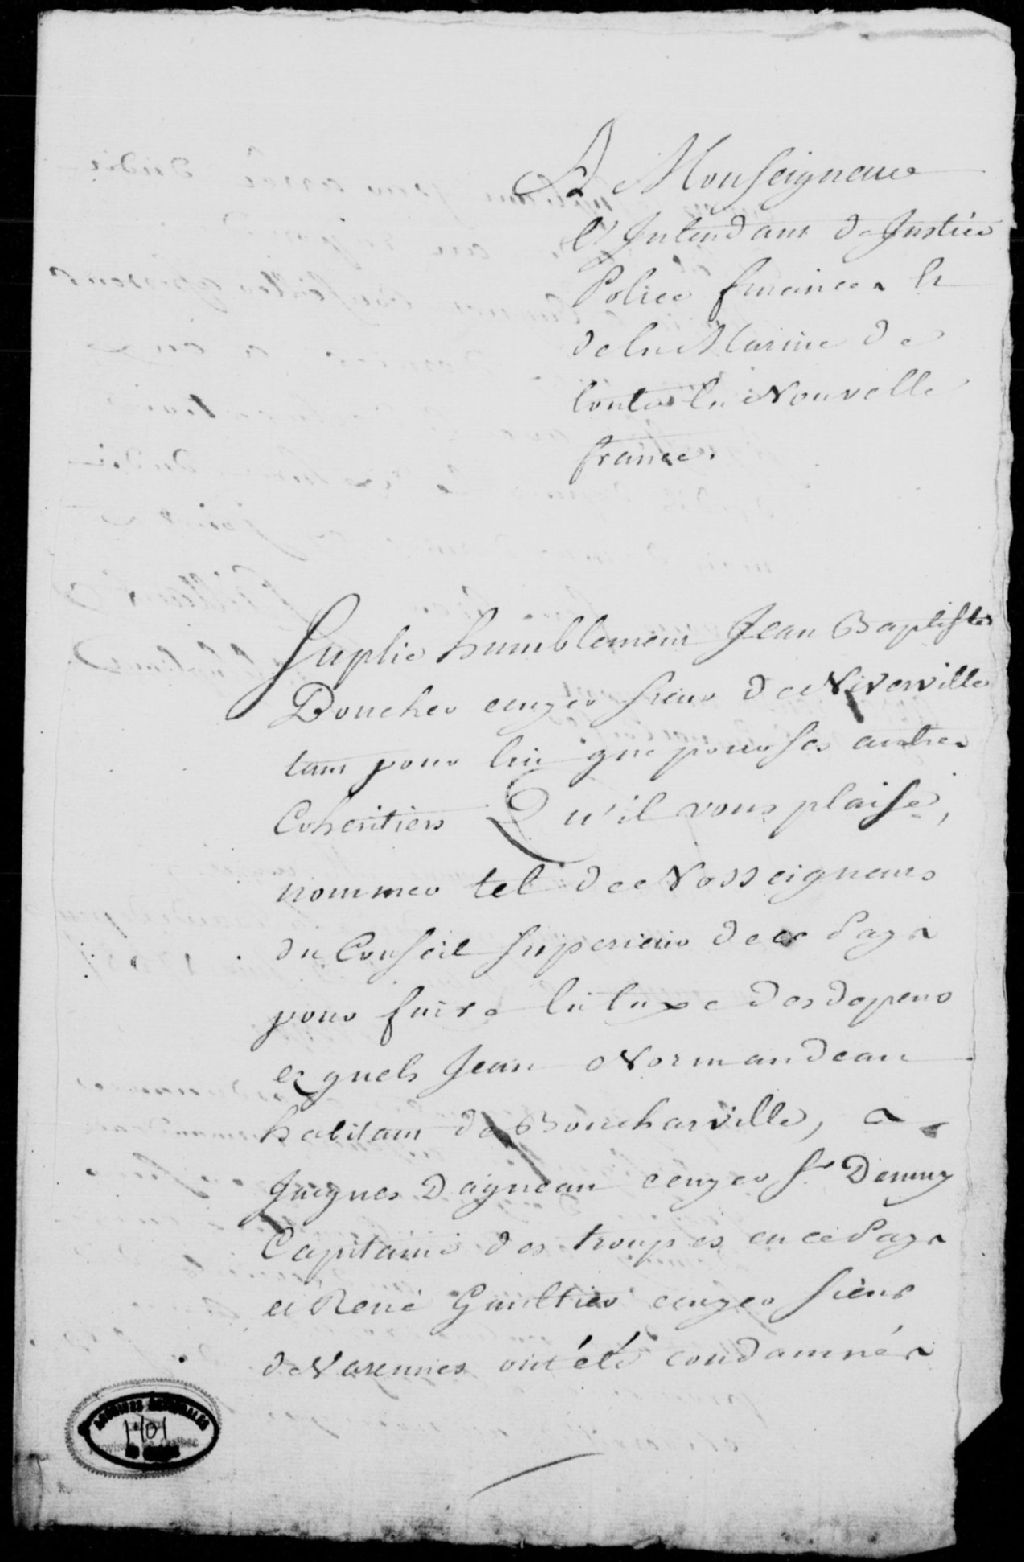 A Monseigneur
L'Intendant de Justice
Police finances et
de la Marine de
toutes la Nouvelle
france.
Suplie humblement Jean Baptiste
Boucher ecuyer sieur de Niverville
tant pour lui que pour ses autres
Coheritiers Qu'il vous plaise,
nommer tel de Nosseigneurs
du Conseil superieur de ce Pays
pour faire la taxe des depens
esquels Jean Normandeau
habitant de Boucharville, a
Jacques Dagneau ecuyer Sr Demuy
Capitaine des troupes en ce Pays
et René Gaultier ecuyer sieur
de Varennes ont été condamnés
1401